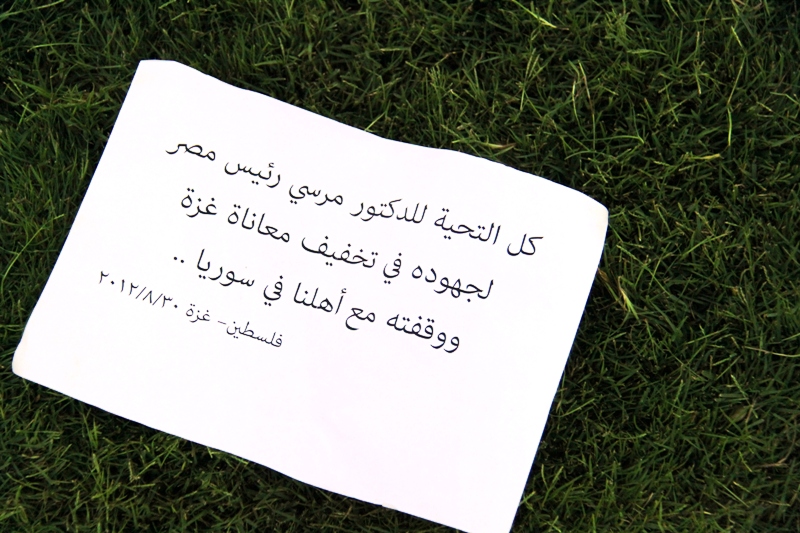 كل التحية للدكتور مرسي رئيس مصر
لجهوده في تخفيف معاناة غزة
ووقفته مع أهلنا في سوريا ..
فلسطين- غزة ٢٠١٢/٨/٣٠